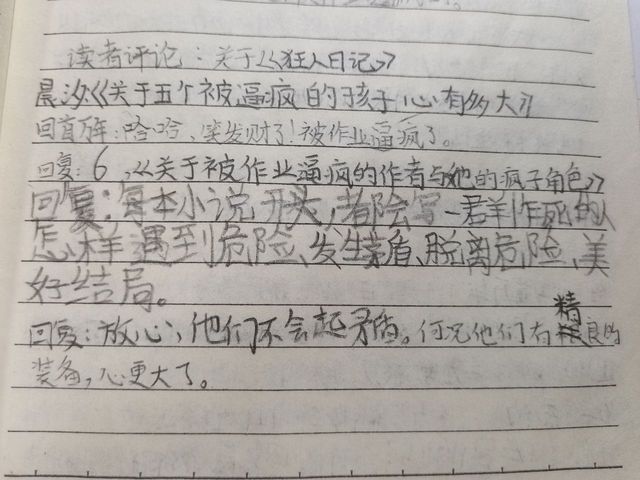 读者评论：关于《狂人日记》
晨汐:《关于五个被逼疯的孩子心有多大》
回首万年：哈哈、笑发财了！被作业逼疯了。
回复：6，《关于被作业逼疯的作者与她的疯子角色》
回复：每本小说开头，都会写一群作死的人
怎样遇到危险、发生矛盾、脱离危险、美
好结局。
回复：放心，他们不会起矛盾。何况他们有精良的
装备，心更大了。